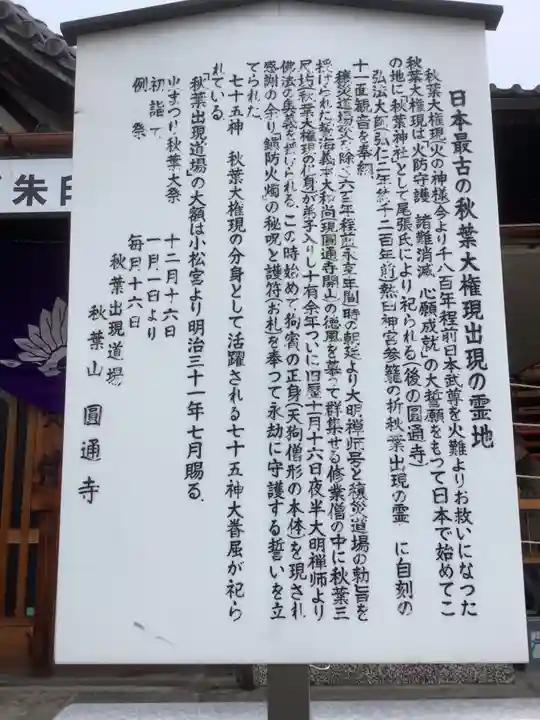 日本最古の秋葉大権現出現の霊地
秋葉大権現(火の神様)今より千八百年程前日本武尊を火難よりお救いになった
秋葉大権現は「火防守護 諸難消滅 心願成就」の大誓願をもって日本で始めてこ
の地に「秋葉神社」として尾張氏により祀られる(後の圓通寺)
弘法大師(弘仁二年約千二百年前)熱田神宮参籠の折秋葉出現の霊 に自刻の
十一面観音を奉納
穰災道場(災を除く)六百年程前(永享年間)時の朝廷より大明禅師号と穰災道場の勅旨を
授けられた誓海義本大和尚現圓通寺開山の徳風を慕って群集せる修業僧の中に秋葉三
尺坊(秋葉大権現の化身)が弟子入りし十有余年ついに旧暦十一月十六日夜半大明禅師より
佛法の奥義を授けられる。この時始めて狗賓の正身(天狗僧形の本体)を現され
感謝の余り「鎮防火燭」の秘呪と護符(お札)を奉つて永劫に守護する誓いを立
てられた
七十五神 秋葉大権現の分身として活躍される七十五神大眷屈が祀ら
れている
「秋葉出現道場」の大額は小松宮より明治三十一年七月賜る
火まつり秋葉大祭 十二月十六日
初詣で 一月一日より
例祭 毎月十六日
秋葉出現道場
秋葉山 圓通寺
朱印